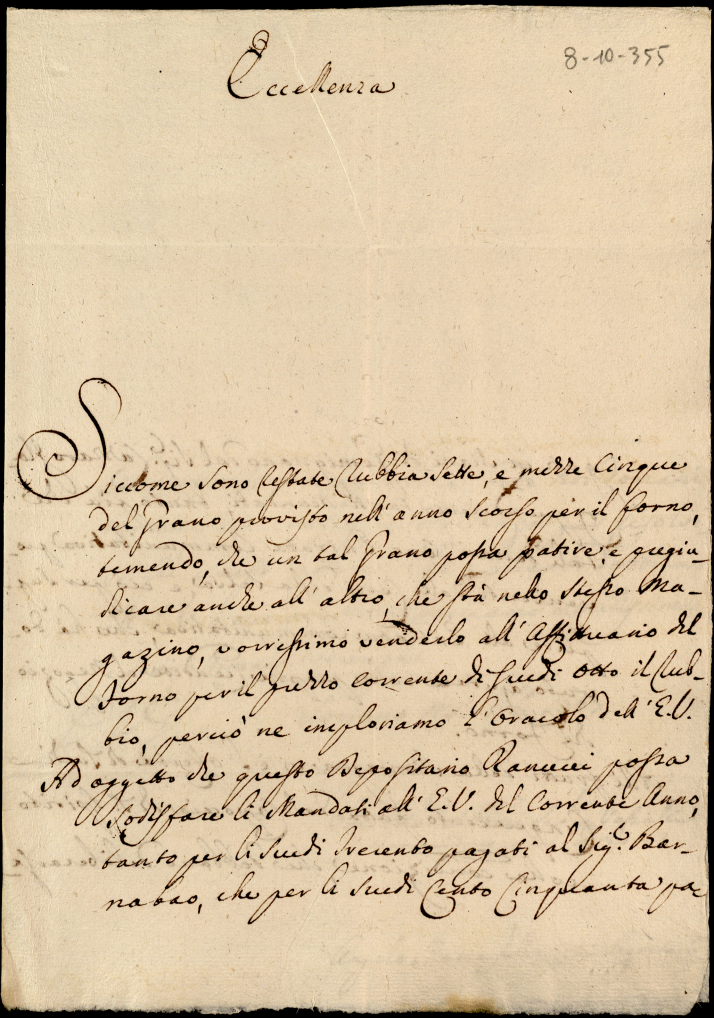 8-10-355
Eccellenza
Siccome sono restate rubbia sette, e mezze Cinque
del Grano provisto nell'anno scorso per il forno,
temendo, che un tal Grano possa patire, e pregiu-
dicare anche all'altro, che stà nello stesso Ma-
gazino, vorressimo venderlo all'Affittuario del
forno per il prezzo corrente di scudi otto il Rub-
bio, perciò ne imploriamo l'Oracolo dell'E.V.
Ad oggetto che questo Depositario Ranucci possa
sodisfare li Mandati all'E.V. del Corrente Anno,
tanto per li scudi trecento pagati al Sig.r Bar-
nabao, che per li scudi Cento Cinquanta pa-